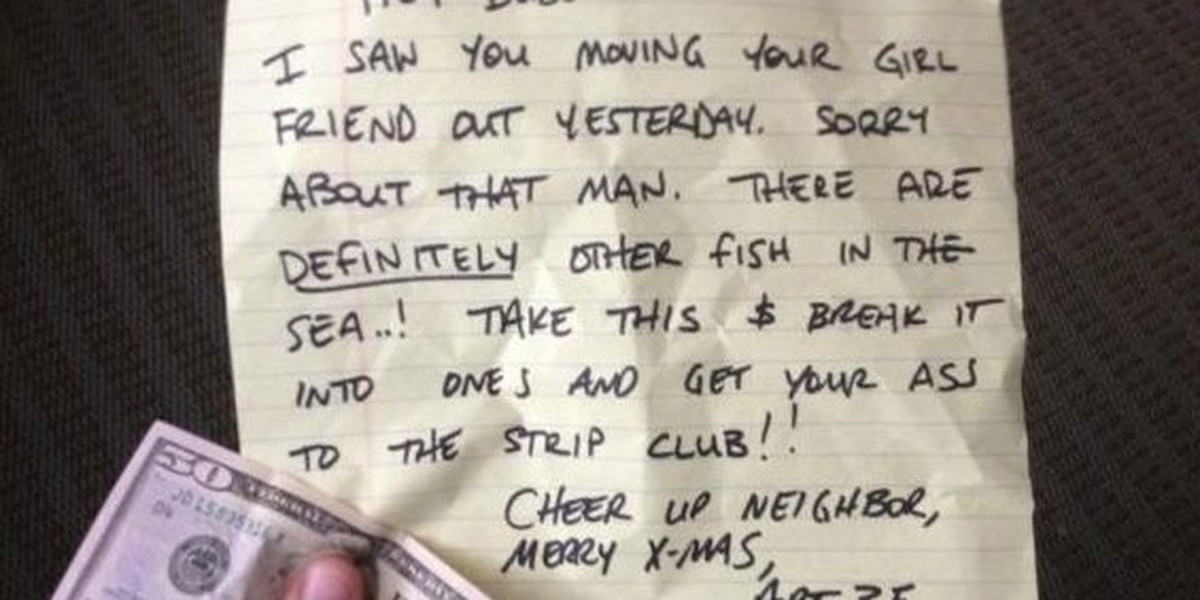 I SAW YOU MOVING YOUR GIRL
FRIEND OUT YESTERDAY. SORRY
ABOUT THAT MAN. THERE ARE
DEFINITELY OTHER FISH IN THE
SEA..! TAKE THIS $ BREAK IT
INTO ONES AND GET YOUR ASS
TO THE STRIP CLUB!!
CHEER UP NEIGHBOR,
MERRY X-MAS,
50